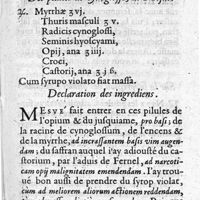 ♃. Myrrhæ ʒ vj.
Thuris masculi ʒ v.
Radicis cynoglossi,
Seminis hyoscyami,
Opij, ana ʒ iiij.
Croci,
Castorij, ana ʒ j ß,
Cum syrupo violato fiat massa.
Declaration des ingrediens.
MESVS fait entrer en ces pilules de
l'opium & du jusquiame, pro basi; de
la racine de cynoglossum, de l'encens &
de la myrrhe, ad incrassantem basis vim augen-
dam; du saffran auquel i'ay adiousté du ca-
storium, par l'adus de Fernel, ad narcoti-
cam opij malignitatem emendendam. I'ay trou-
ué bon aussi de prendre du syrop violat,
cum ad meliorem aliorum actionem reddendam,